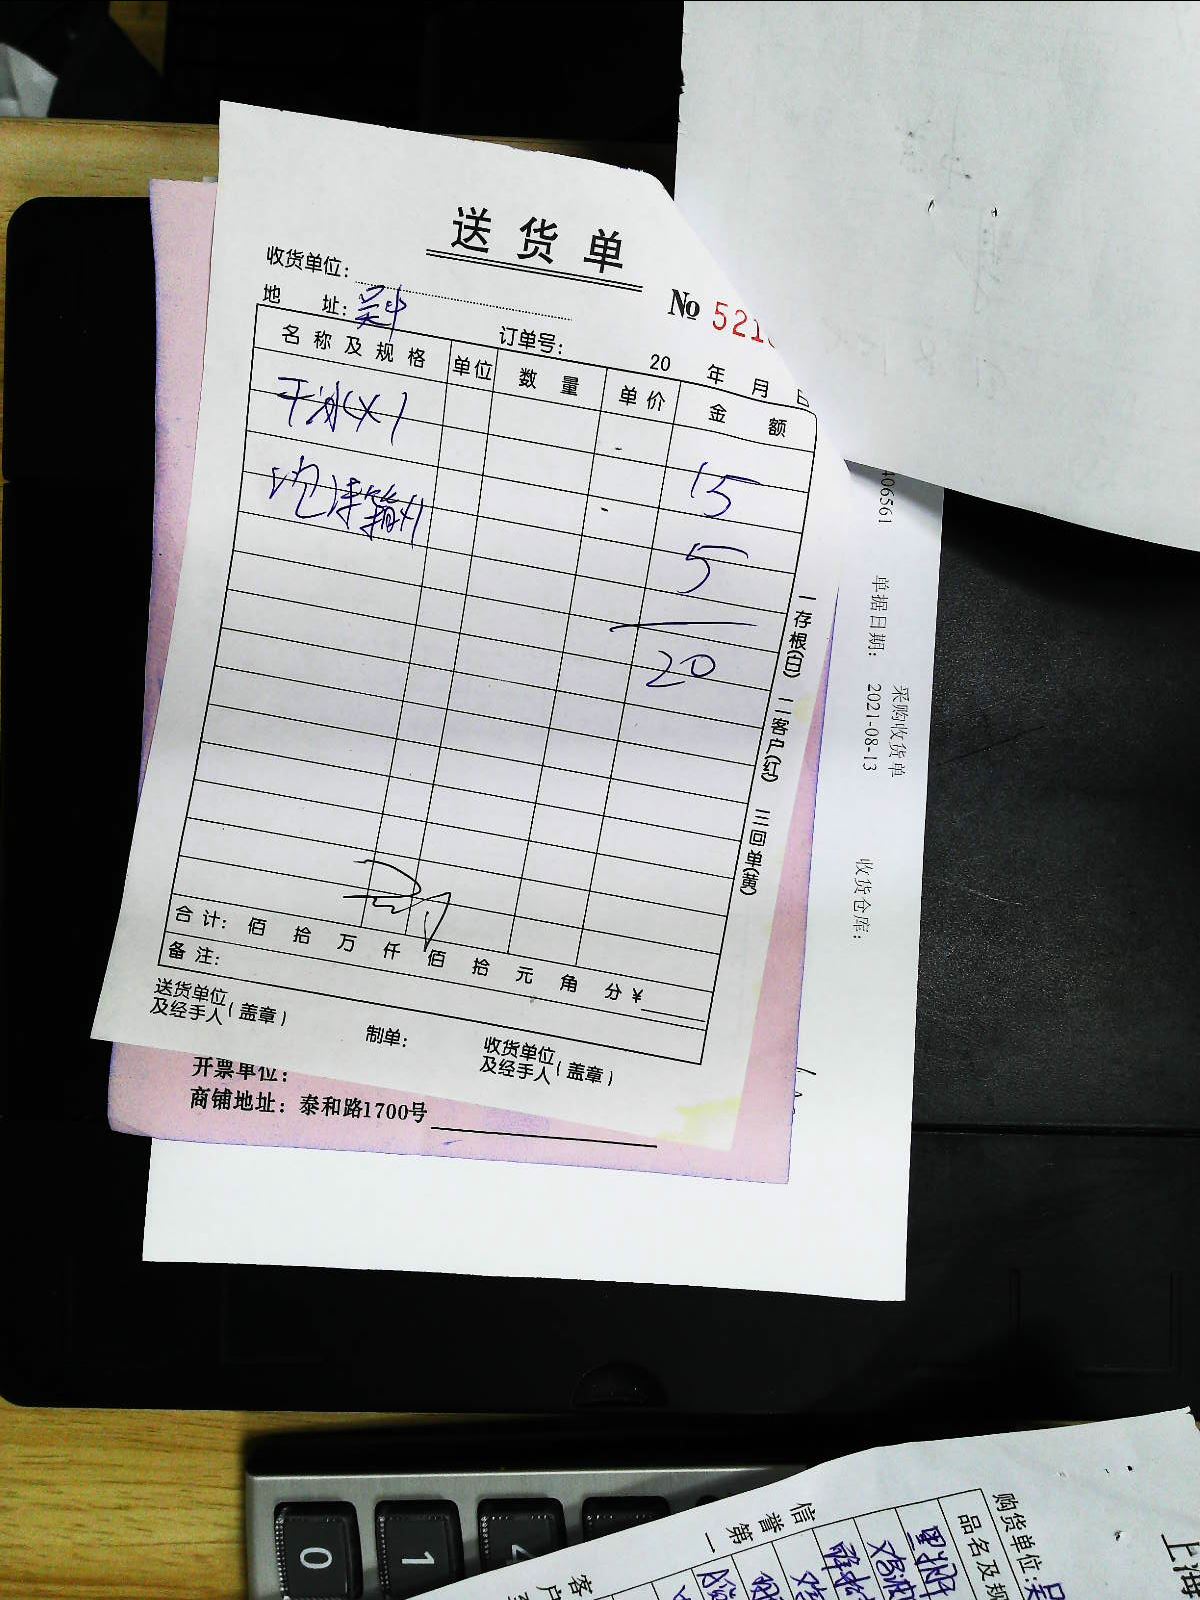 送货单
收货单位：
№ 521
地 址： 吴中
订单号： 20 年 月 日
名称及规格 单位 数量 单价 金额
干冰X1 15
泡沫箱X1 5
20
合计： 佰 拾 万 仟 佰 拾 元 角 分 ¥
备注：
送货单位及经手人（盖章） 制单： 收货单位及经手人（盖章）
一存根(白) 二客户(红) 三回单(黄)
开票单位：
商铺地址：泰和路1700号
采购收货单
406561 单据日期： 2021-08-13 收货仓库：
0 1
上海
购货单位：吴
品名及规
信誉第一
客户